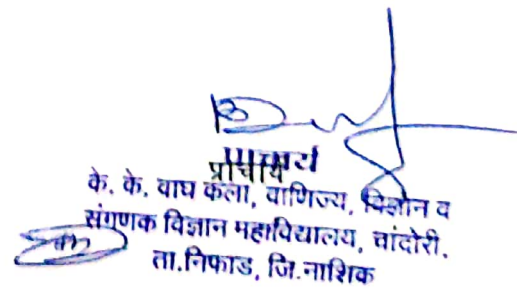 प्राचार्य
के. के. वाघ कला, वाणिज्य, विज्ञान व
संगणक विज्ञान महाविद्यालय, चांदोरी,
ता.निफाड, जि.नाशिक